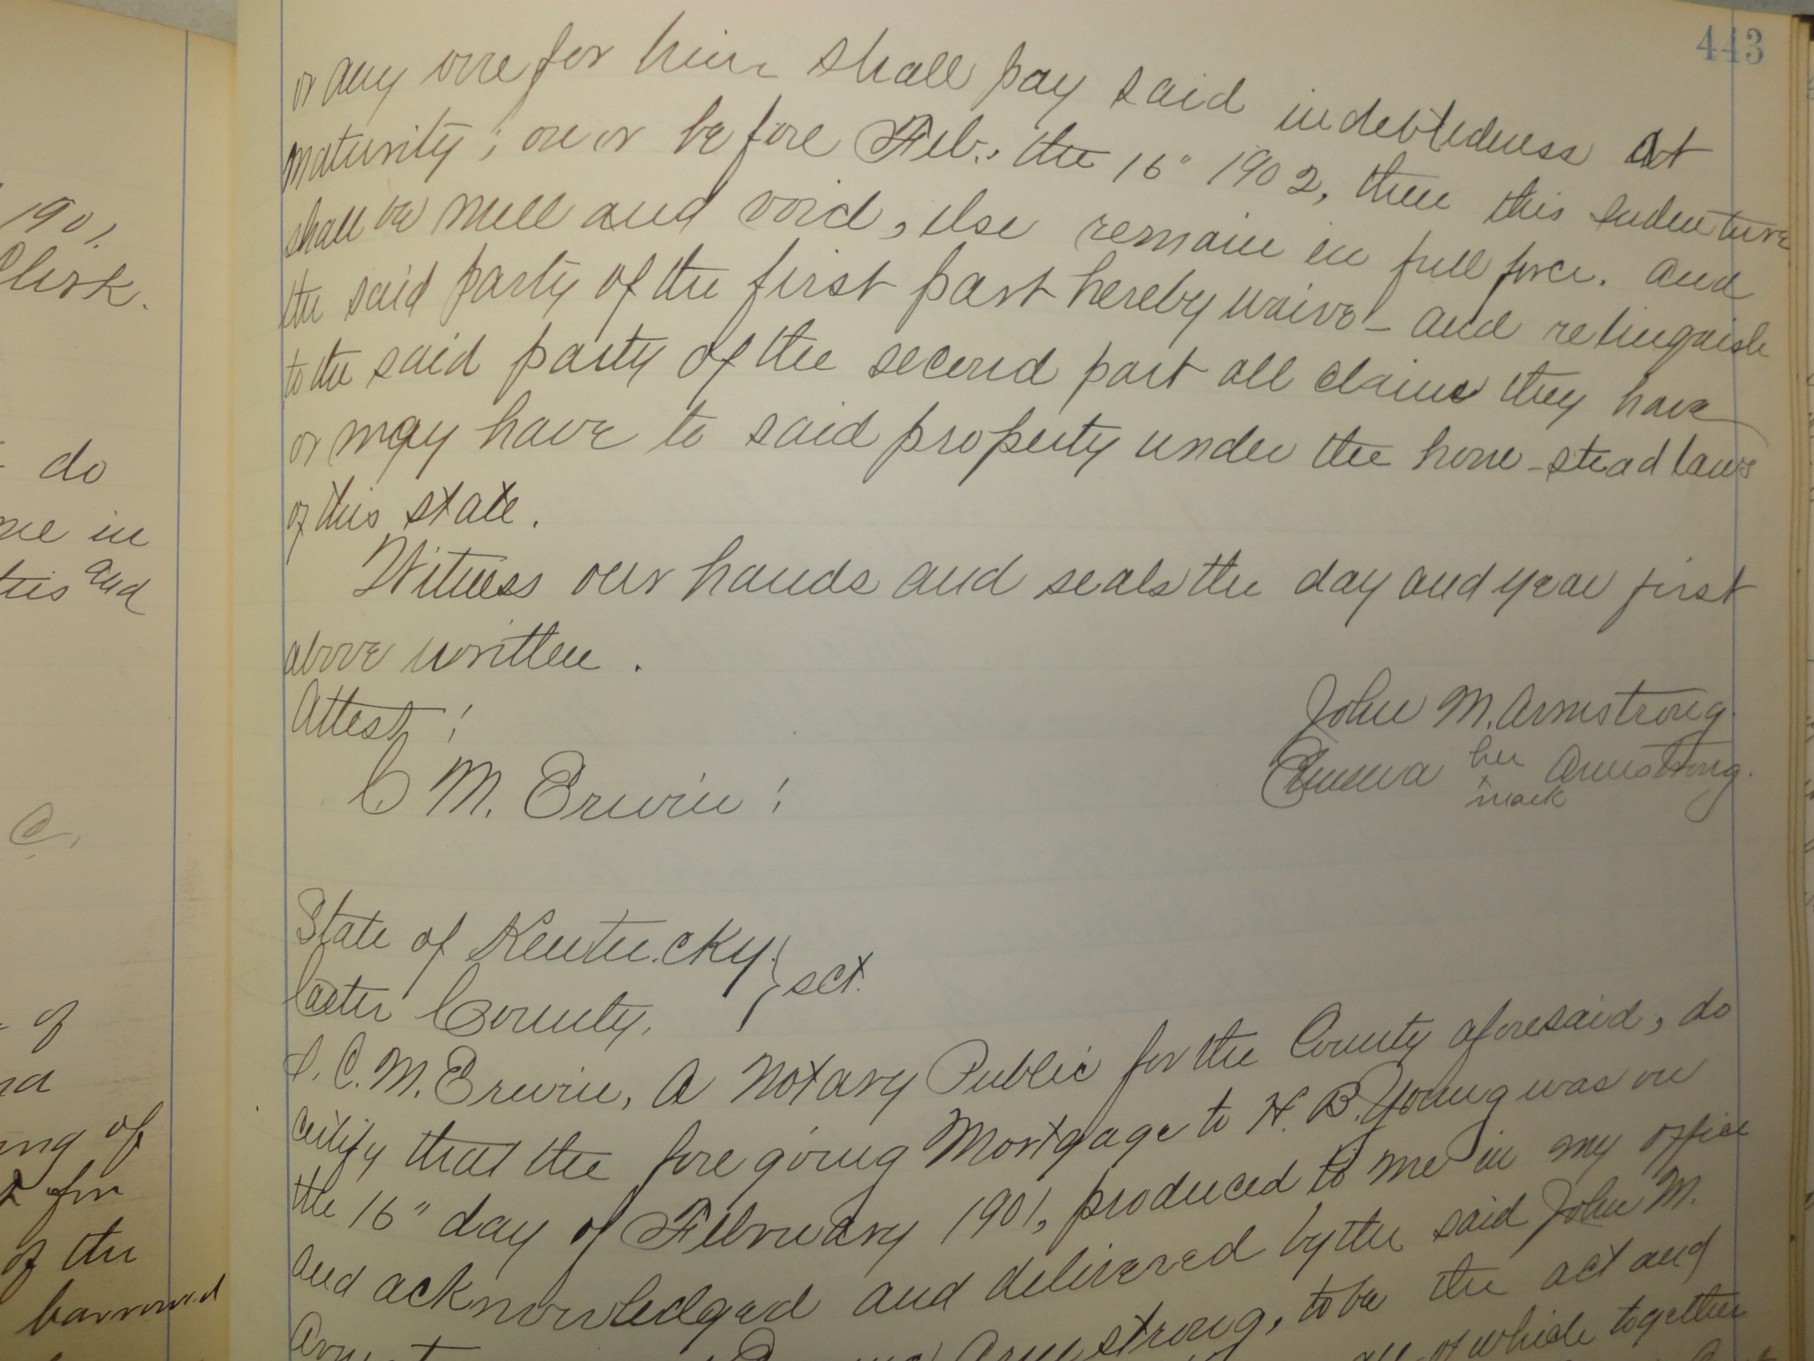 443
or any one for him shall pay said indebtedness at
maturity; on or before Feb., the 16" 1902, then this Indenture
shall be null and void, else remain in full force. and
the said party of the first part hereby waive - and relinquish
to the said party of the second part all claims they have
or may have to said property under the home-stead laws
of this state.
Witness our hands and seals the day and year first
above written.
Attest;
John M. Armstrong.
C M. Erwin;
Emma her x mark Armstrong.
State of Kentucky } sct.
Carter County.
I. C. M. Erwin, a Notary Public for the County aforesaid, do
certify that the fore going Mortgage to H. B. Young was on
the 16" day of February 1901, produced to me in my office
and acknowledged and delivered by the said John M.
Armstrong, to be the act and
all of which together
1901.
Clerk.
do
me in
and
C.
of
of
for
of the
borrowed